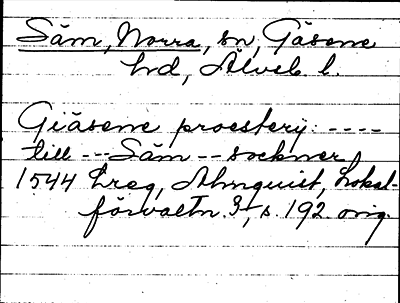 Säm, Norra, sn, Gäsene
hd, Älvsb. l.
Giäsene proestery: ----
till --- Säm -- sockner
1544 Lreg, Almquist, Lokal-
förvaltn. 3, s. 192. orig.